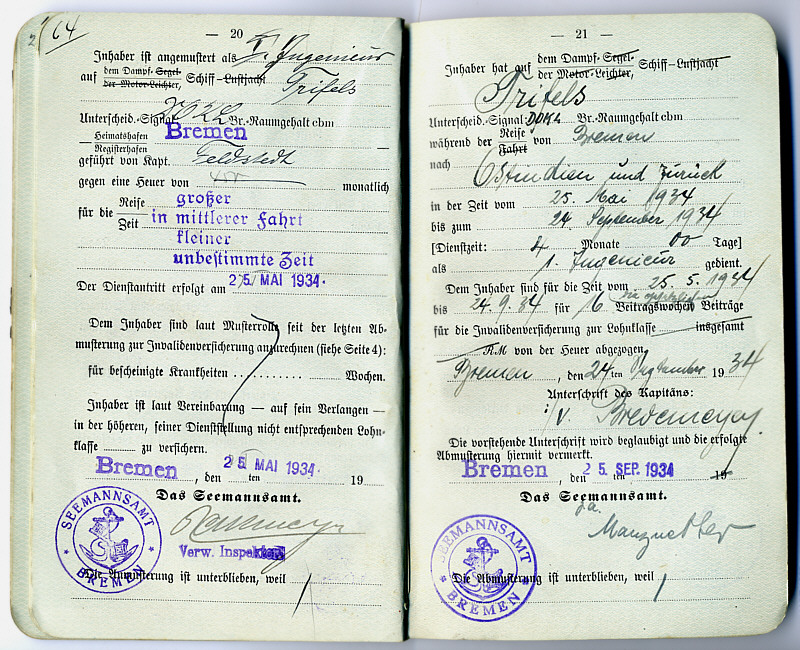 64
— 20 —
Inhaber ist angemustert als I. Ingenieur
auf dem Dampf-Segel- Schiff-Lustjacht Trifels
der Motor-Leichter,
Unterscheid.-Signal Br.-Raumgehalt cbm
Heimatshafen Bremen
Registerhafen
geführt von Kapt. Feldstedt
gegen eine Heuer von monatlich
für die Reise großer
Zeit in mittlerer Fahrt
kleiner
unbestimmte Zeit
Der Dienstantritt erfolgt am 25. MAI 1934.
Dem Inhaber sind laut Musterrolle seit der letzten Ab-
musterung zur Invalidenversicherung anzurechnen (siehe Seite 4):
für bescheinigte Krankheiten ........... Wochen.
Inhaber ist laut Vereinbarung — auf sein Verlangen —
in der höheren, seiner Dienststellung nicht entsprechenden Lohn-
klasse ......... zu versichern.
Bremen, den 25 MAI 1934. ten 19
Das Seemannsamt.
SEEMANNSAMT BREMEN
Verw. Inspektor
Die Abmusterung ist unterblieben, weil
— 21 —
Inhaber hat auf dem Dampf-Segel- Schiff-Lustjacht
der Motor-Leichter,
Trifels
Unterscheid.-Signal DOMA Br.-Raumgehalt cbm
während der Reise von Bremen
Fahrt
nach Ostindien und zurück
in der Zeit vom 25. Mai 1934
bis zum 24. September 1934
[Dienstzeit: 4 Monate 00 Tage]
als 1. Ingenieur gedient.
Dem Inhaber sind für die Zeit vom 25. 5. 1934
bis 24. 9. 34 für 16 Beitragswochen Beiträge
für die Invalidenversicherung zur Lohnklasse insgesamt
R.M von der Heuer abgezogen.
Bremen, den 24 ten September 1934
Unterschrift des Kapitäns:
Bredemeyer
Die vorstehende Unterschrift wird beglaubigt und die erfolgte
Abmusterung hiermit vermerkt.
Bremen, den 25. SEP. 1934 ten 19
Das Seemannsamt.
SEEMANNSAMT BREMEN
Die Abmusterung ist unterblieben, weil